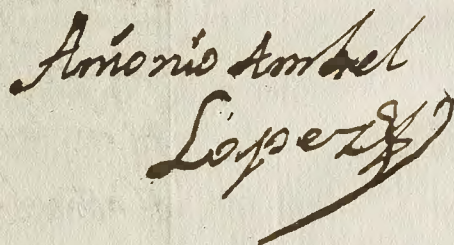 Antonio Ambel
Lopez